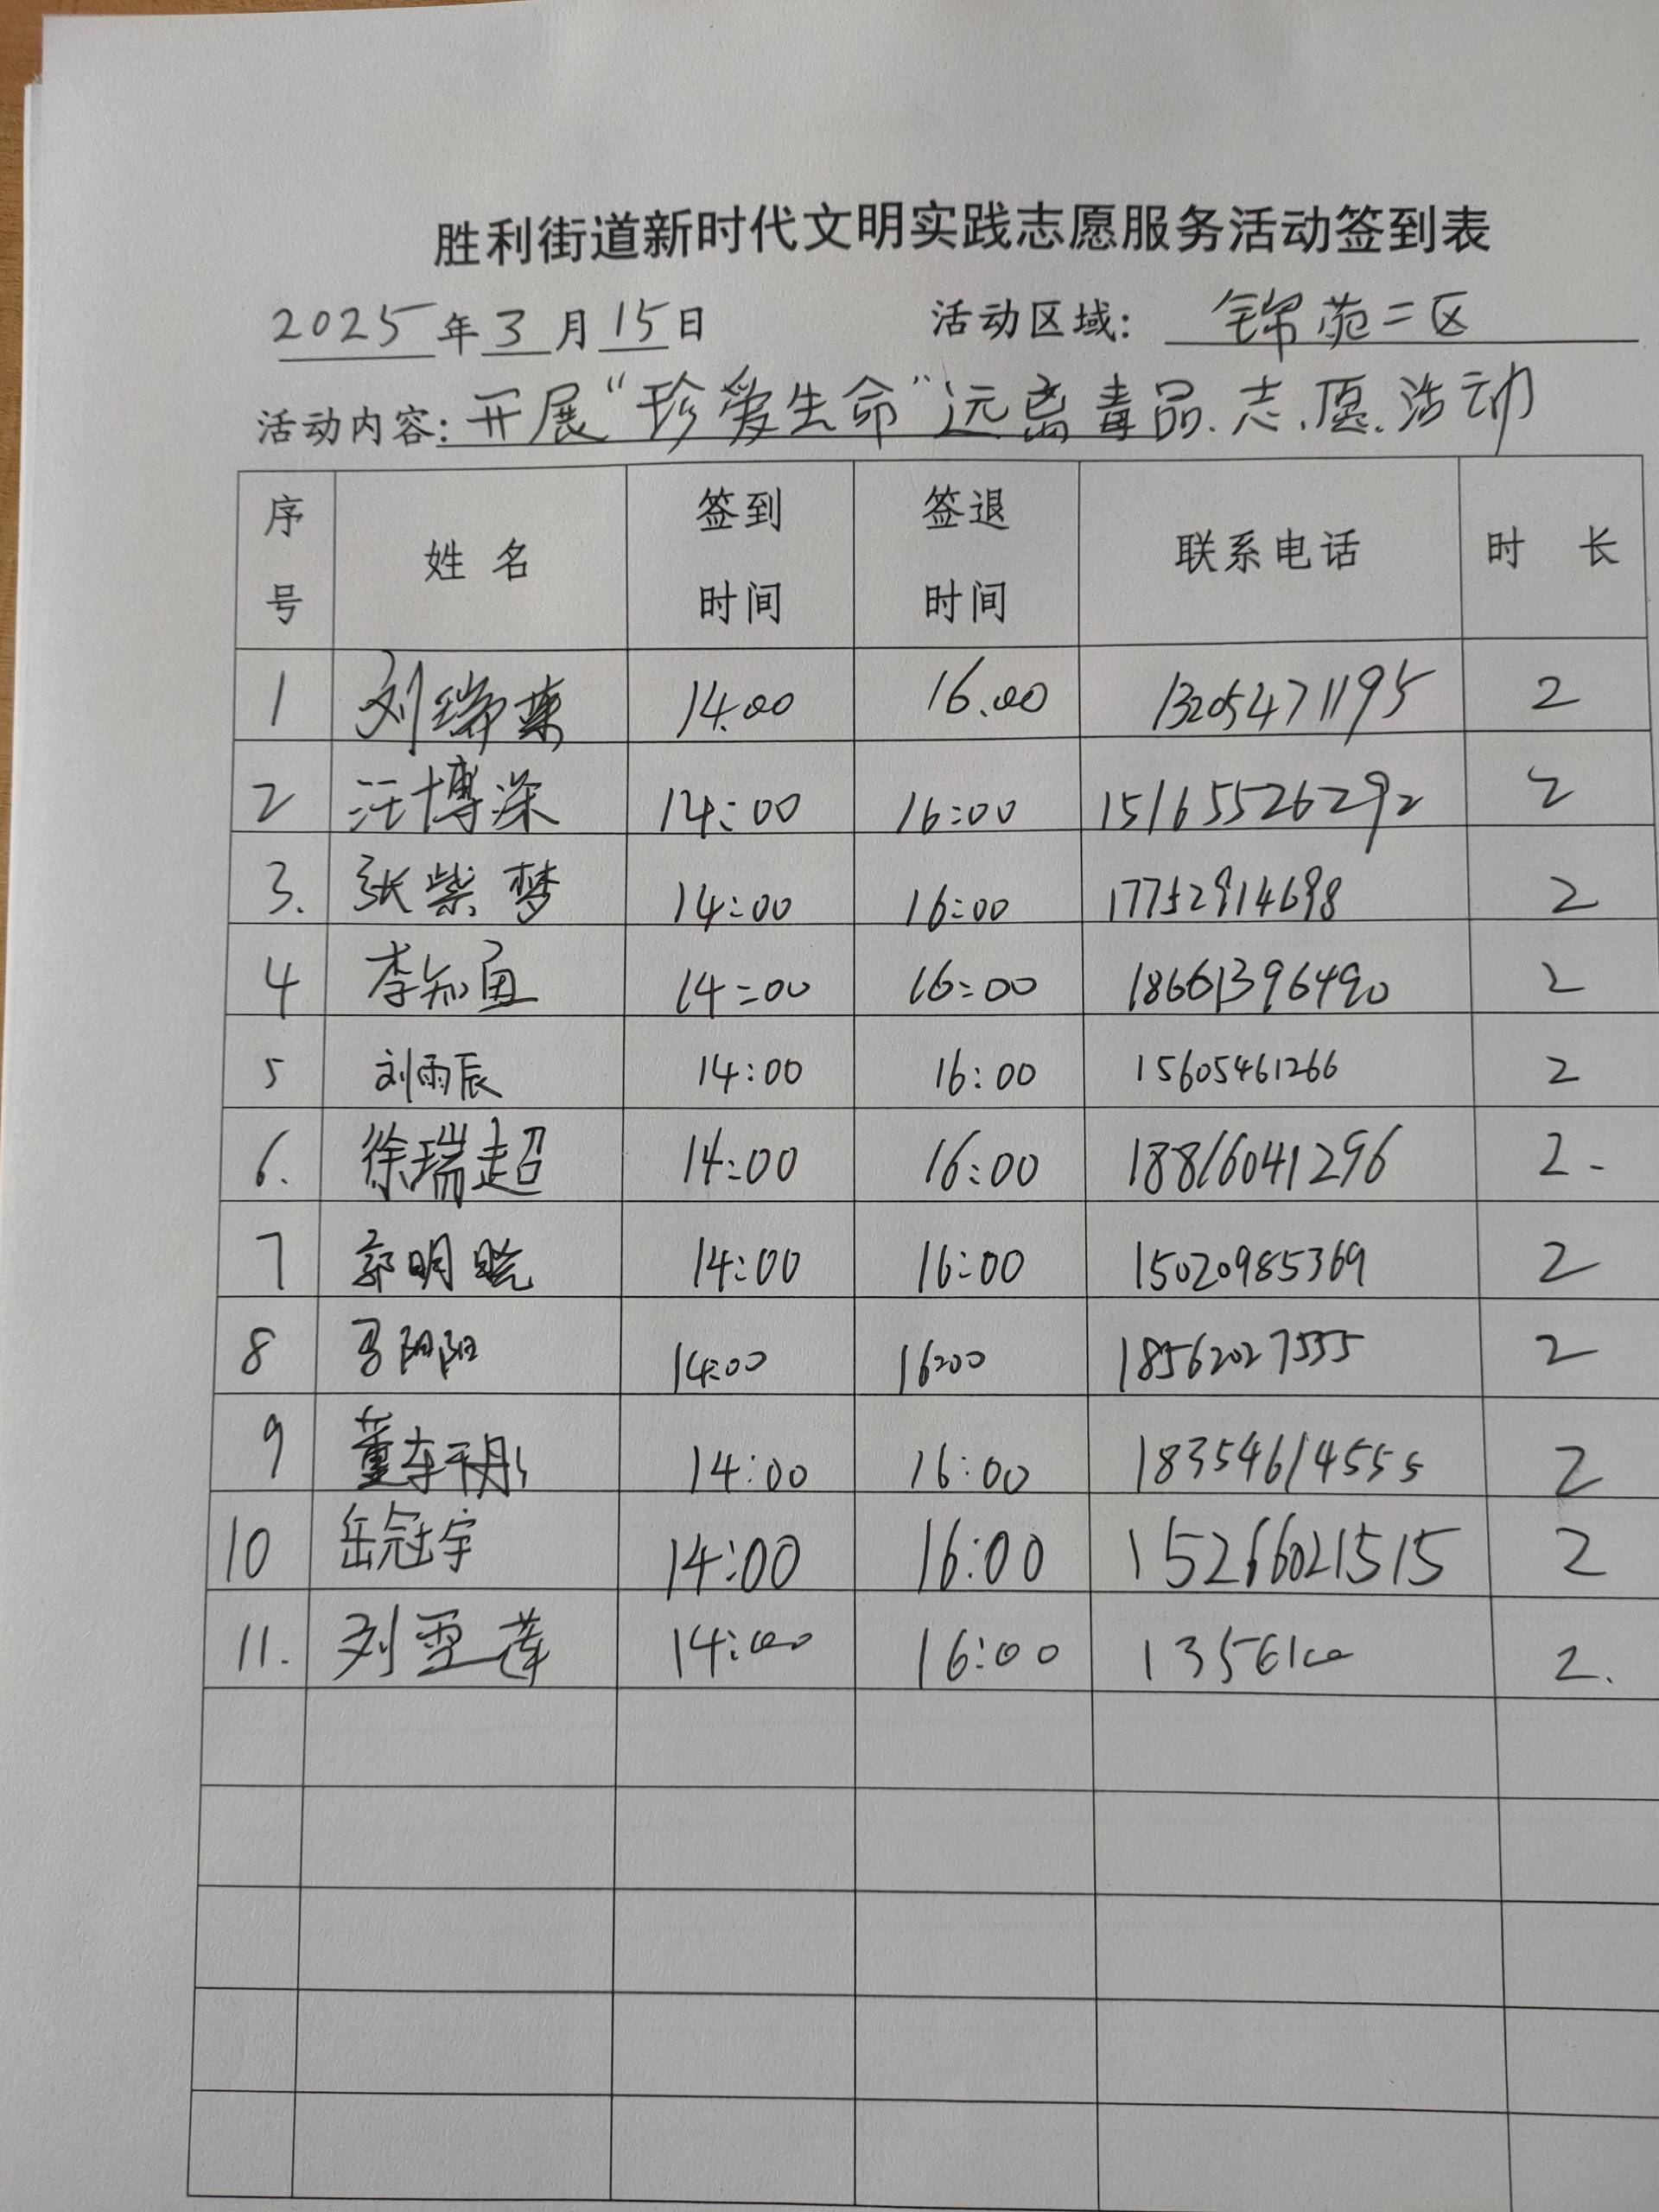 胜利街道新时代文明实践志愿服务活动签到表
2025年3月15日 活动区域: 锦苑二区
活动内容: 开展“珍爱生命”远离毒品.志.愿.活动
序号 姓名 签到时间 签退时间 联系电话 时长
1 刘瑞 14:00 16.00 13205471195 2
2 汪博深 14:00 16:00 15165526292 2
3. 张紫梦 14:00 16:00 17752914698 2
4 李知鱼 14:00 16:00 18661396490 2
5 刘雨辰 14:00 16:00 15605461266 2
6. 徐瑞超 14:00 16:00 18816041296 2-
7 郭明皓 14:00 16:00 15020985369 2
8 马阳阳 14:00 16:00 18562027555 2
9 董 14:00 16:00 18354614555 2
10 岳冠宇 14:00 16:00 15266021515 2
11. 刘雪莲 14:00 16:00 2.